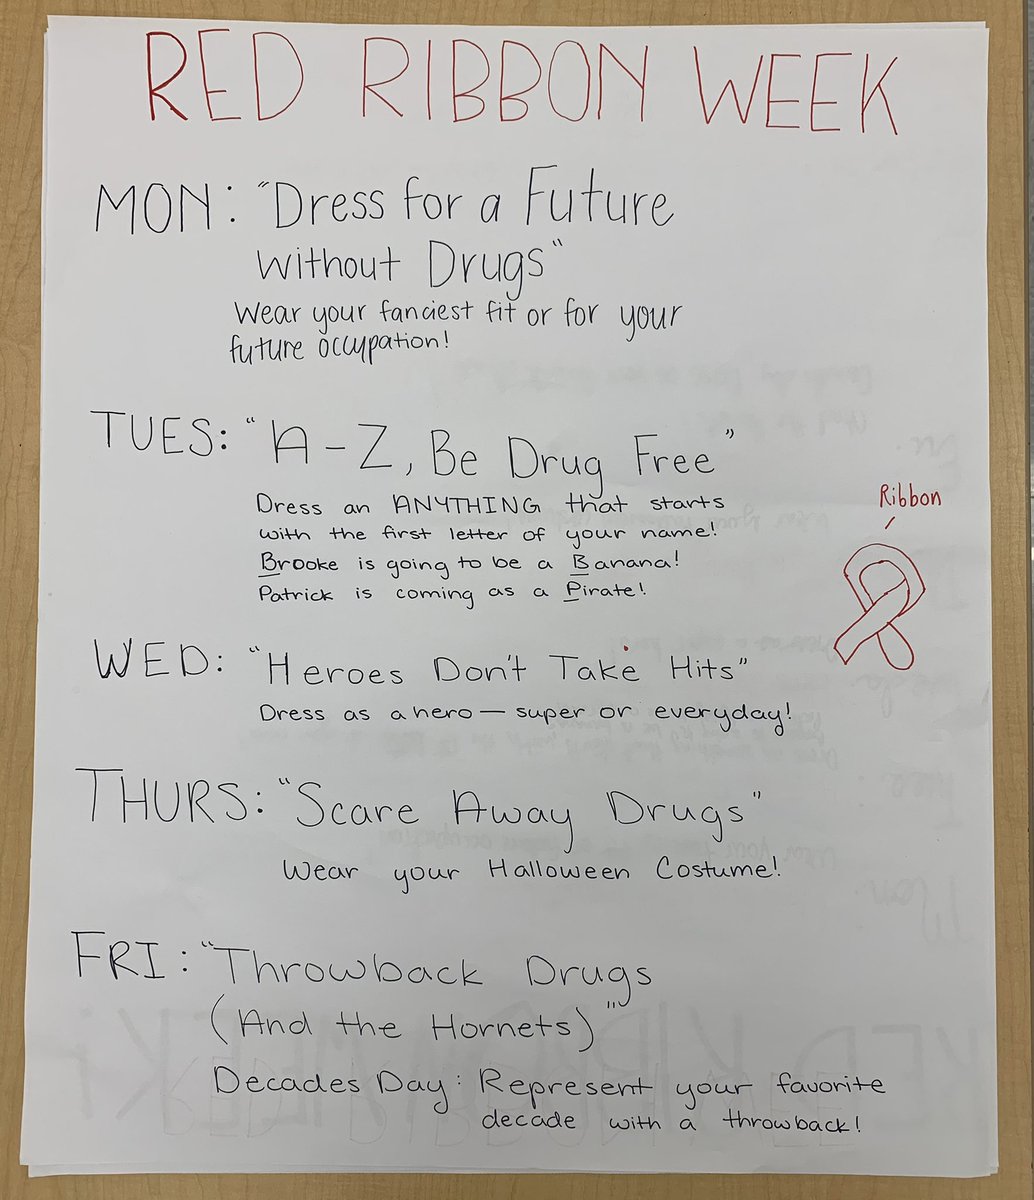 RED RIBBON WEEK
MON: "Dress for a Future
without Drugs"
Wear your fanciest fit or for your
future occupation!
TUES: "A-Z, Be Drug Free"
Dress an ANYTHING that starts
with the first letter of your name!
Brooke is going to be a Banana!
Patrick is coming as a Pirate!
Ribbon
WED: "Heroes Don't Take Hits"
Dress as a hero — super or everyday!
THURS: "Scare Away Drugs"
Wear your Halloween Costume!
FRI: "Throwback Drugs
(And the Hornets)"
Decades Day: Represent your favorite
decade with a throwback!